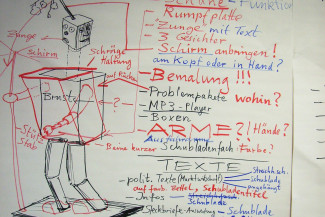 Funktion
- Rumpfplatte
- Zunge mit Text
- 3 Gesichter
- Schirm anbringen!
am Kopf oder in Hand?
- Bemalung!!!
- Problempakete wohin?
- MP3-Player
- Boxen
- ARME?! Hände?
- Schubladenfach - Farbe?
TEXTE
- polit. Texte
auf farb. Zettel, Schubladentitel
- Infos
Schublade
Schublade
Zunge
Schirm
Schräge
Haltung
auf Rücken
Brust
- ? -
Stütz
Stab
Beine kürzer